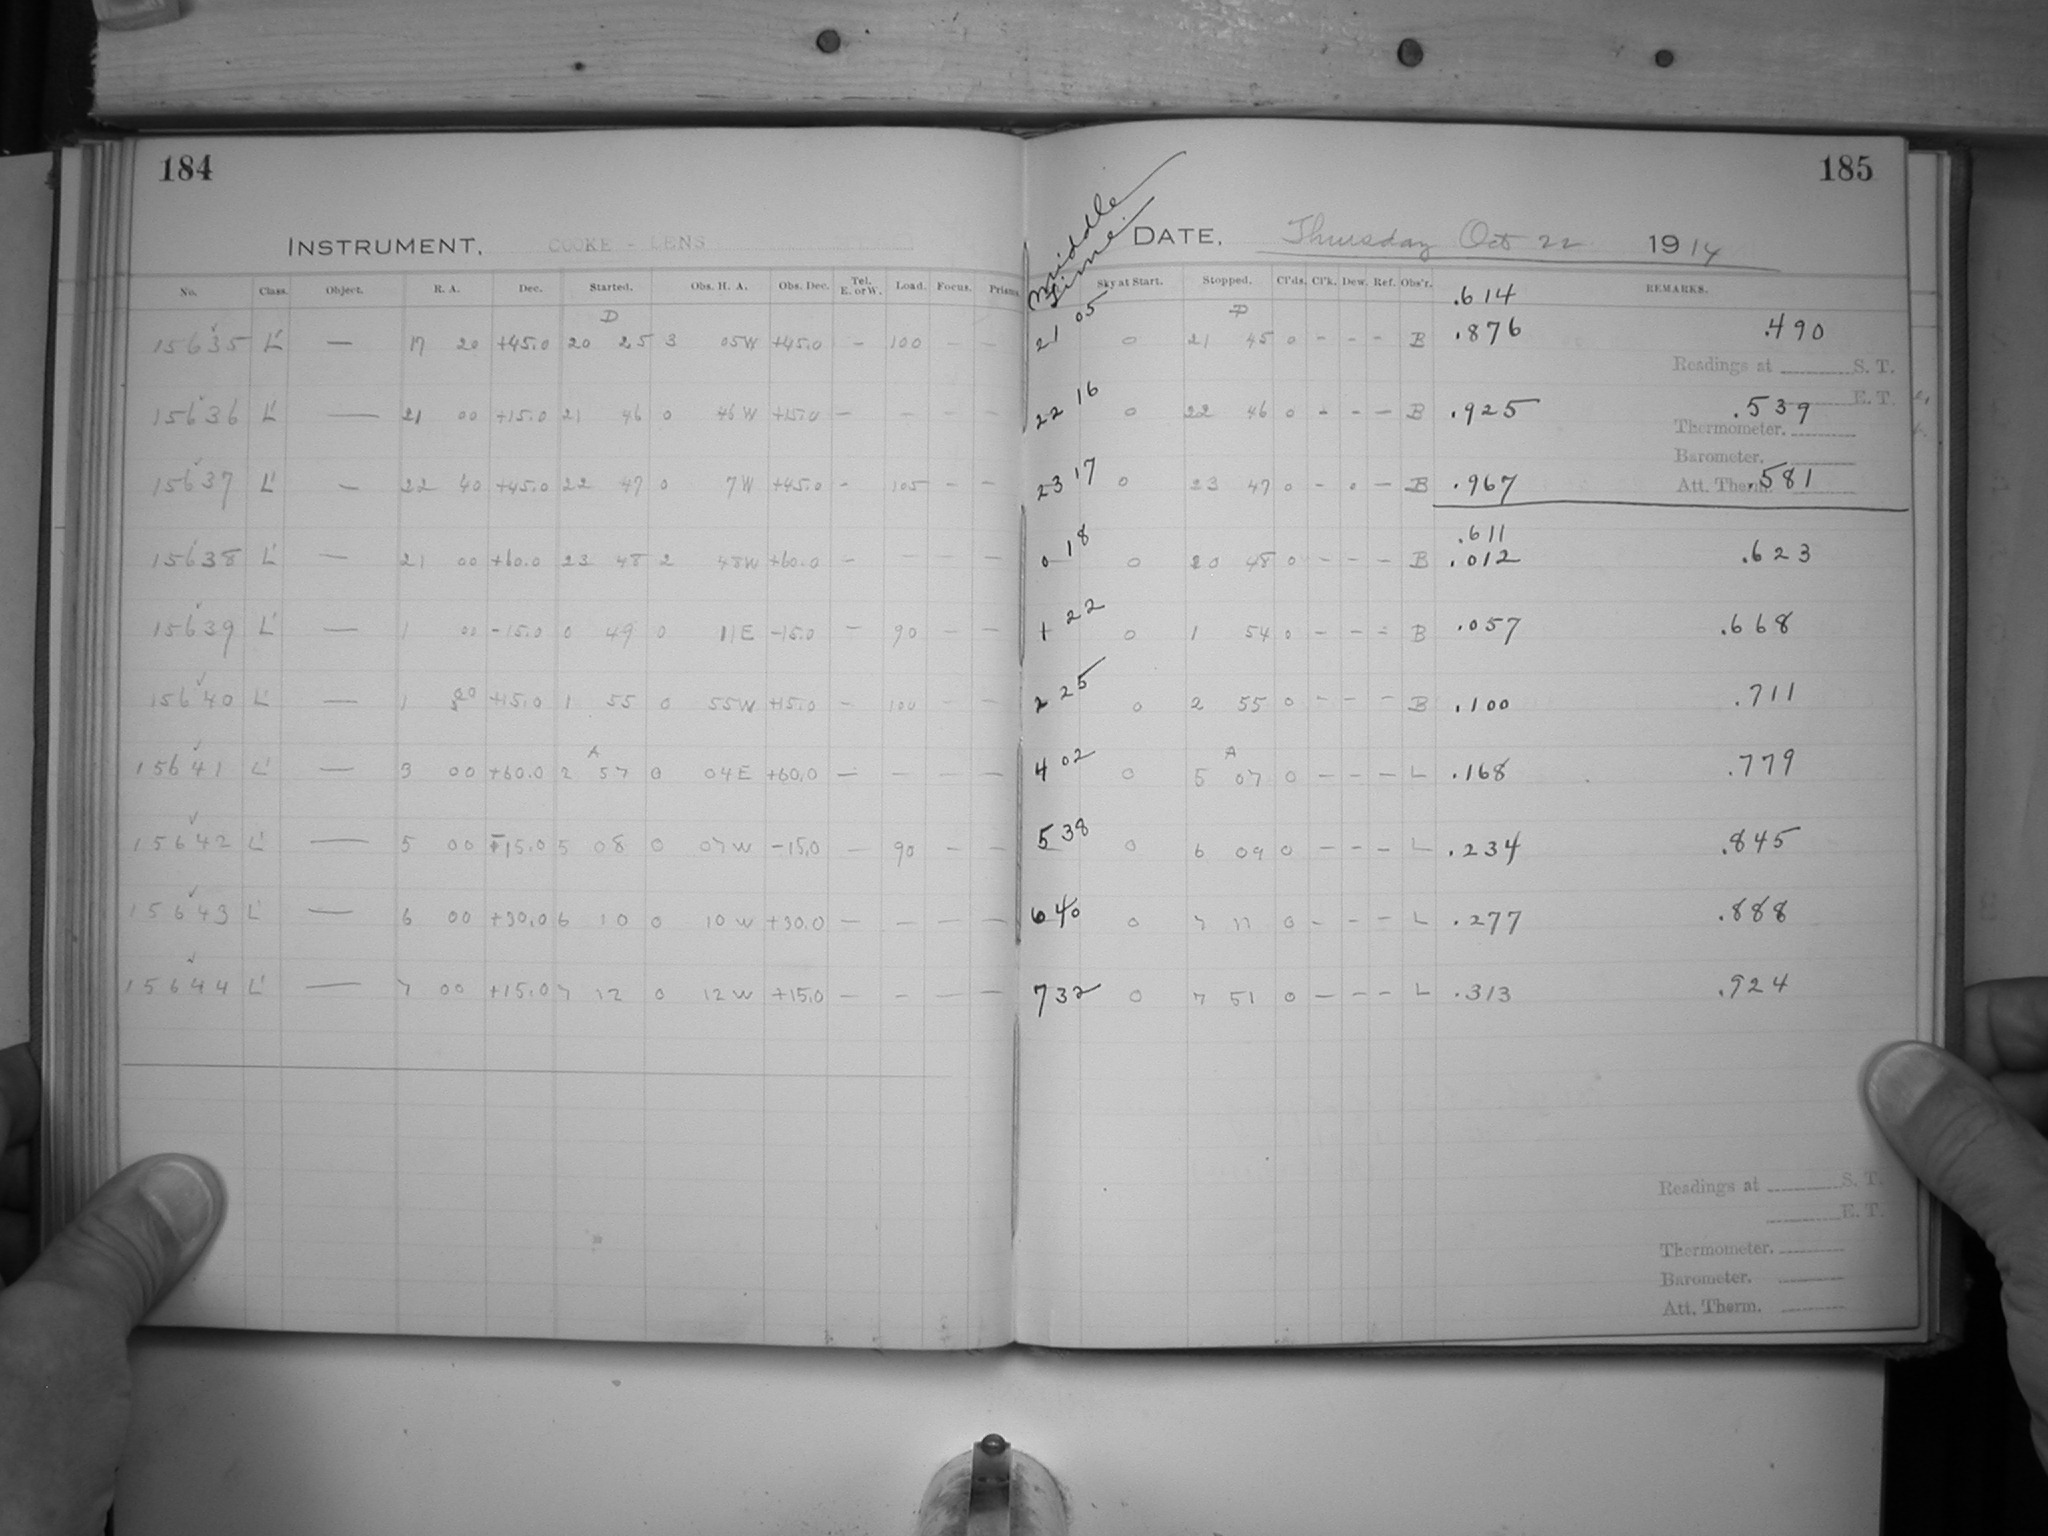 184
INSTRUMENT. COOKE - LENS
No. Class. Object. R. A. Dec. Started. Obs. H. A. Obs. Dec. Tel. E. or W. Load. Focus. Prisms
D
15635 L' — 17 20 +45.0 20 25 3 05W +45.0 - 100 - -
15636 L' — 21 00 +15.0 21 46 0 46W +15.0 - - - -
15637 L' — 22 40 +45.0 22 47 0 7W +45.0 - 105 - -
15638 L' — 21 00 +60.0 23 48 2 48W +60.0 - - - -
15639 L' — 1 00 -15.0 0 49 0 11E -15.0 - 90 - -
15640 L' — 1 +15.0 1 55 0 55W +15.0 - 100 - -
A
15641 L' — 3 00 +60.0 2 57 0 04E +60.0 - - - -
15642 L' — 5 00 -15.0 5 08 0 07W -15.0 - 90 - -
15643 L' — 6 00 +30.0 6 10 0 10W +30.0 - - - -
15644 L' — 7 00 +15.0 7 12 0 12W +15.0 - - - -
185
Middle Time
DATE. Thursday Oct 22 1914
Sky at Start. Stopped. Cl'ds. Cl'k. Dew. Ref. Obs'r. REMARKS.
.614
D
21 05 0 21 45 0 - - - B .876 .490
Readings at S. T.
E. T.
22 16 0 22 46 0 - - - B .925 .539
Thermometer.
Barometer.
23 17 0 23 47 0 - - - B .967 .581
Att. Therm.
.611
0 18 0 20 48 0 - - - B .012 .623
1 22 0 1 54 0 - - - B .057 .668
2 25 0 2 55 0 - - - B .100 .711
A
4 02 0 5 07 0 - - - L .168 .779
5 38 0 6 09 0 - - - L .234 .845
6 40 0 7 11 0 - - - L .277 .888
7 32 0 7 51 0 - - - L .313 .924
Readings at S. T.
E. T.
Thermometer.
Barometer.
Att. Therm.